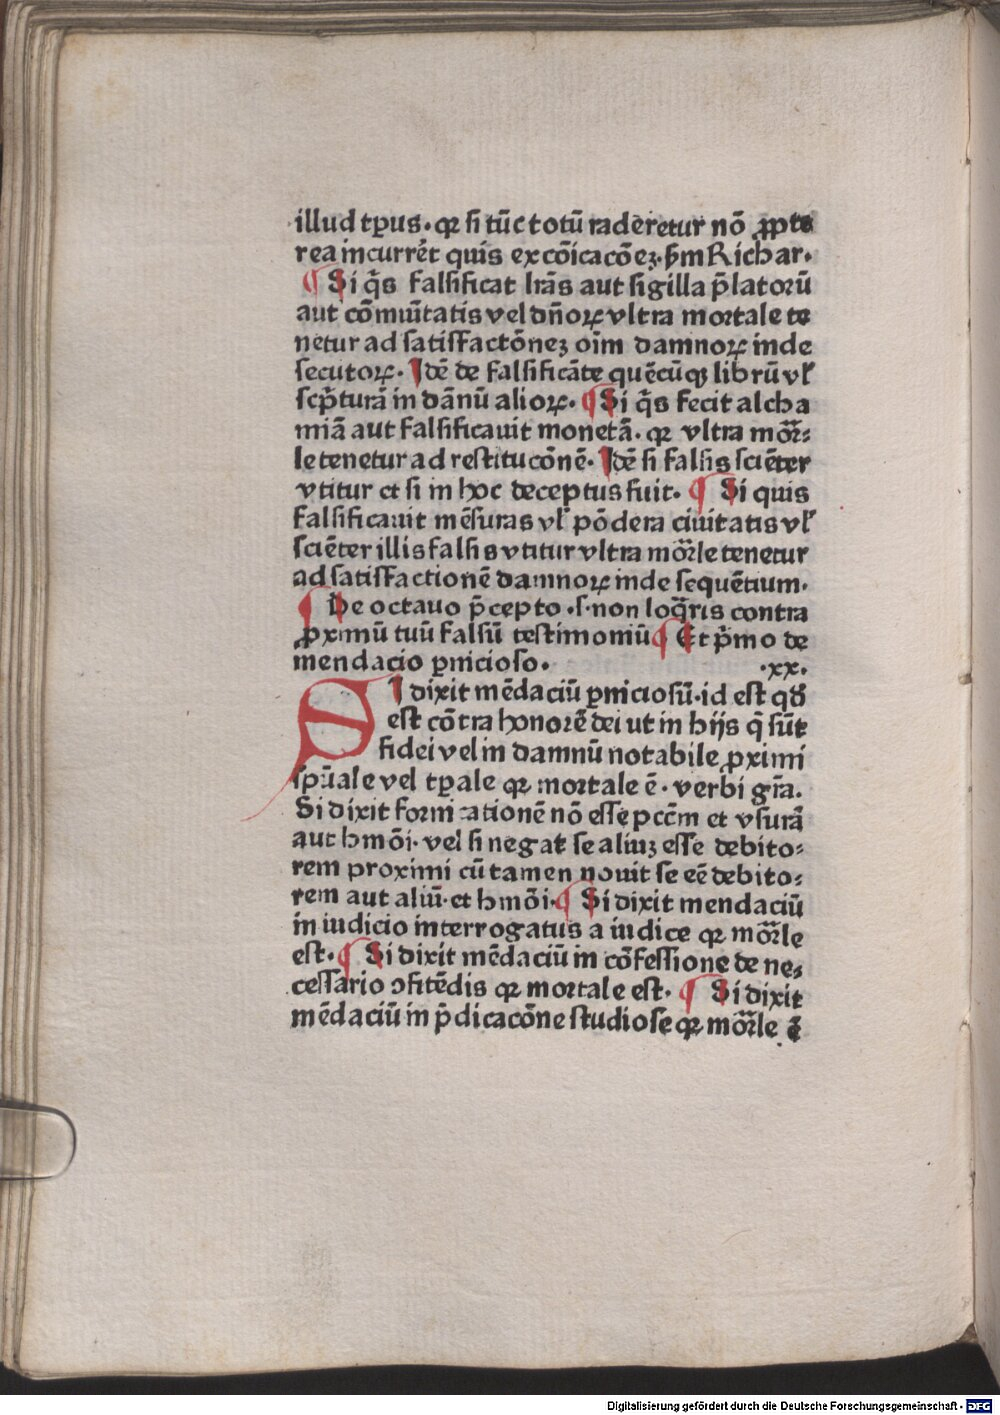 illud tp̄us. qꝛ si tūc totū raderetur nō ꝓpte
rea incurrēt quis excōicacōeꝫ. ẜm Richar.
¶ Si q̄s falsificat lr̄as aut sigilla p̄latoꝛū
aut cōmuītatis vel dn̄oꝝ vltra moꝛtale te
netur ad satiſfactōneꝫ oīm damnoꝝ inde
secutoꝝ. Idē de falsificāte quēcūqꝫ librū vl̓
scp̄turā in dānū alioꝝ. ¶ Si q̄s fecit alcha
miā aut falsificauit monetā. qꝛ vltra mōꝛ⸗
le tenetur ad restitucōnē. Idē si falsis sciēter
vtitur et si in hoc deceptus fuit. ¶ Si quis
falsificauit mēsuras vl̓ pōdera ciuitatis vl̓
sciēter illis falsis vtitur vltra mōꝛle tenetur
ad satisfactionē damnoꝝ inde sequētium.
¶ De octauo p̄cepto .s. non loq̄ris contra
ꝓximū tuū falsū testimoniū ¶ Et p̄mo de
mendacio ꝑnicioso. .xx.
SI dixit mēdaciū ꝑniciosū. id est qd̓
est cōtra honorē dei ut in hijs q̄ sūt
fidei vel in damnū notabile ꝓximi
sp̄uale vel tp̄ale qꝛ moꝛtale ē. verbi gr̄a.
Si dixit fornicationē nō esse pcc̄m et vsurā
aut hmōi. vel si negat se aliuꝫ esse debito⸗
rem proximi cū tamen nouit se eē debito⸗
rem aut aliū. et hmōi. ¶ Si dixit mendaciū
in iudicio interrogatus a iudice qꝛ mōꝛle
est. ¶ Si dixit mēdaciū in cōfessione de ne⸗
cessario ↄfitēdis qꝛ moꝛtale est. ¶ Si dixit
mēdaciū in p̄dicacōne studiose qꝛ mōꝛle ē
Digitalisierung gefördert durch die Deutsche Forschungsgemeinschaft - DFG